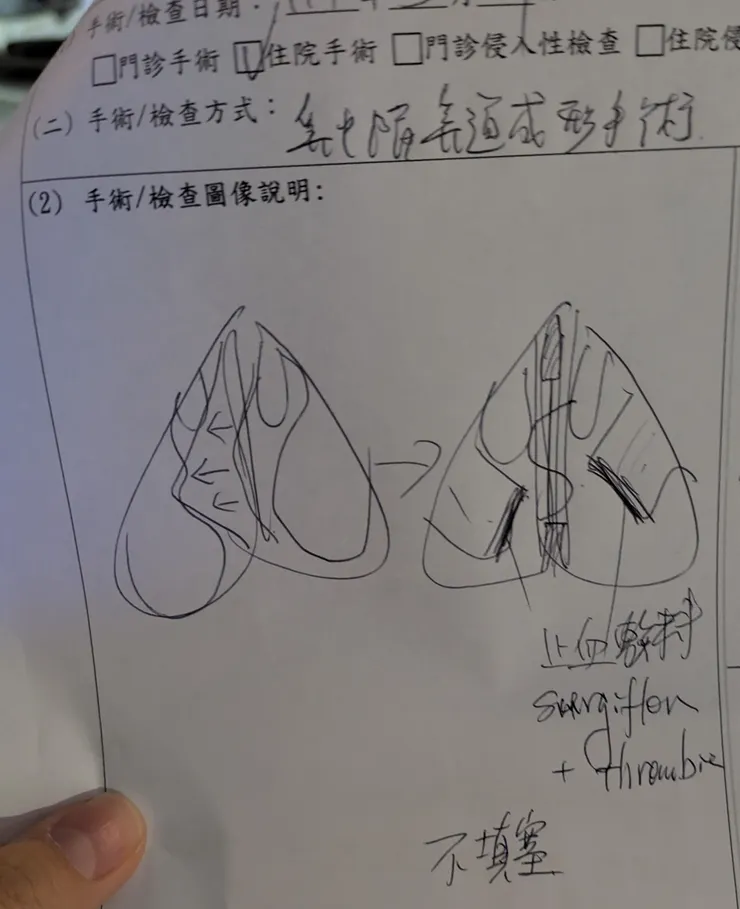 手術/檢查日期：
□門診手術 ☑住院手術 □門診侵入性檢查 □住院侵
(二) 手術/檢查方式：鼻中隔鼻道成形手術
(2) 手術/檢查圖像說明：
止血敷料
surgiflow
+ thrombin
不填塞